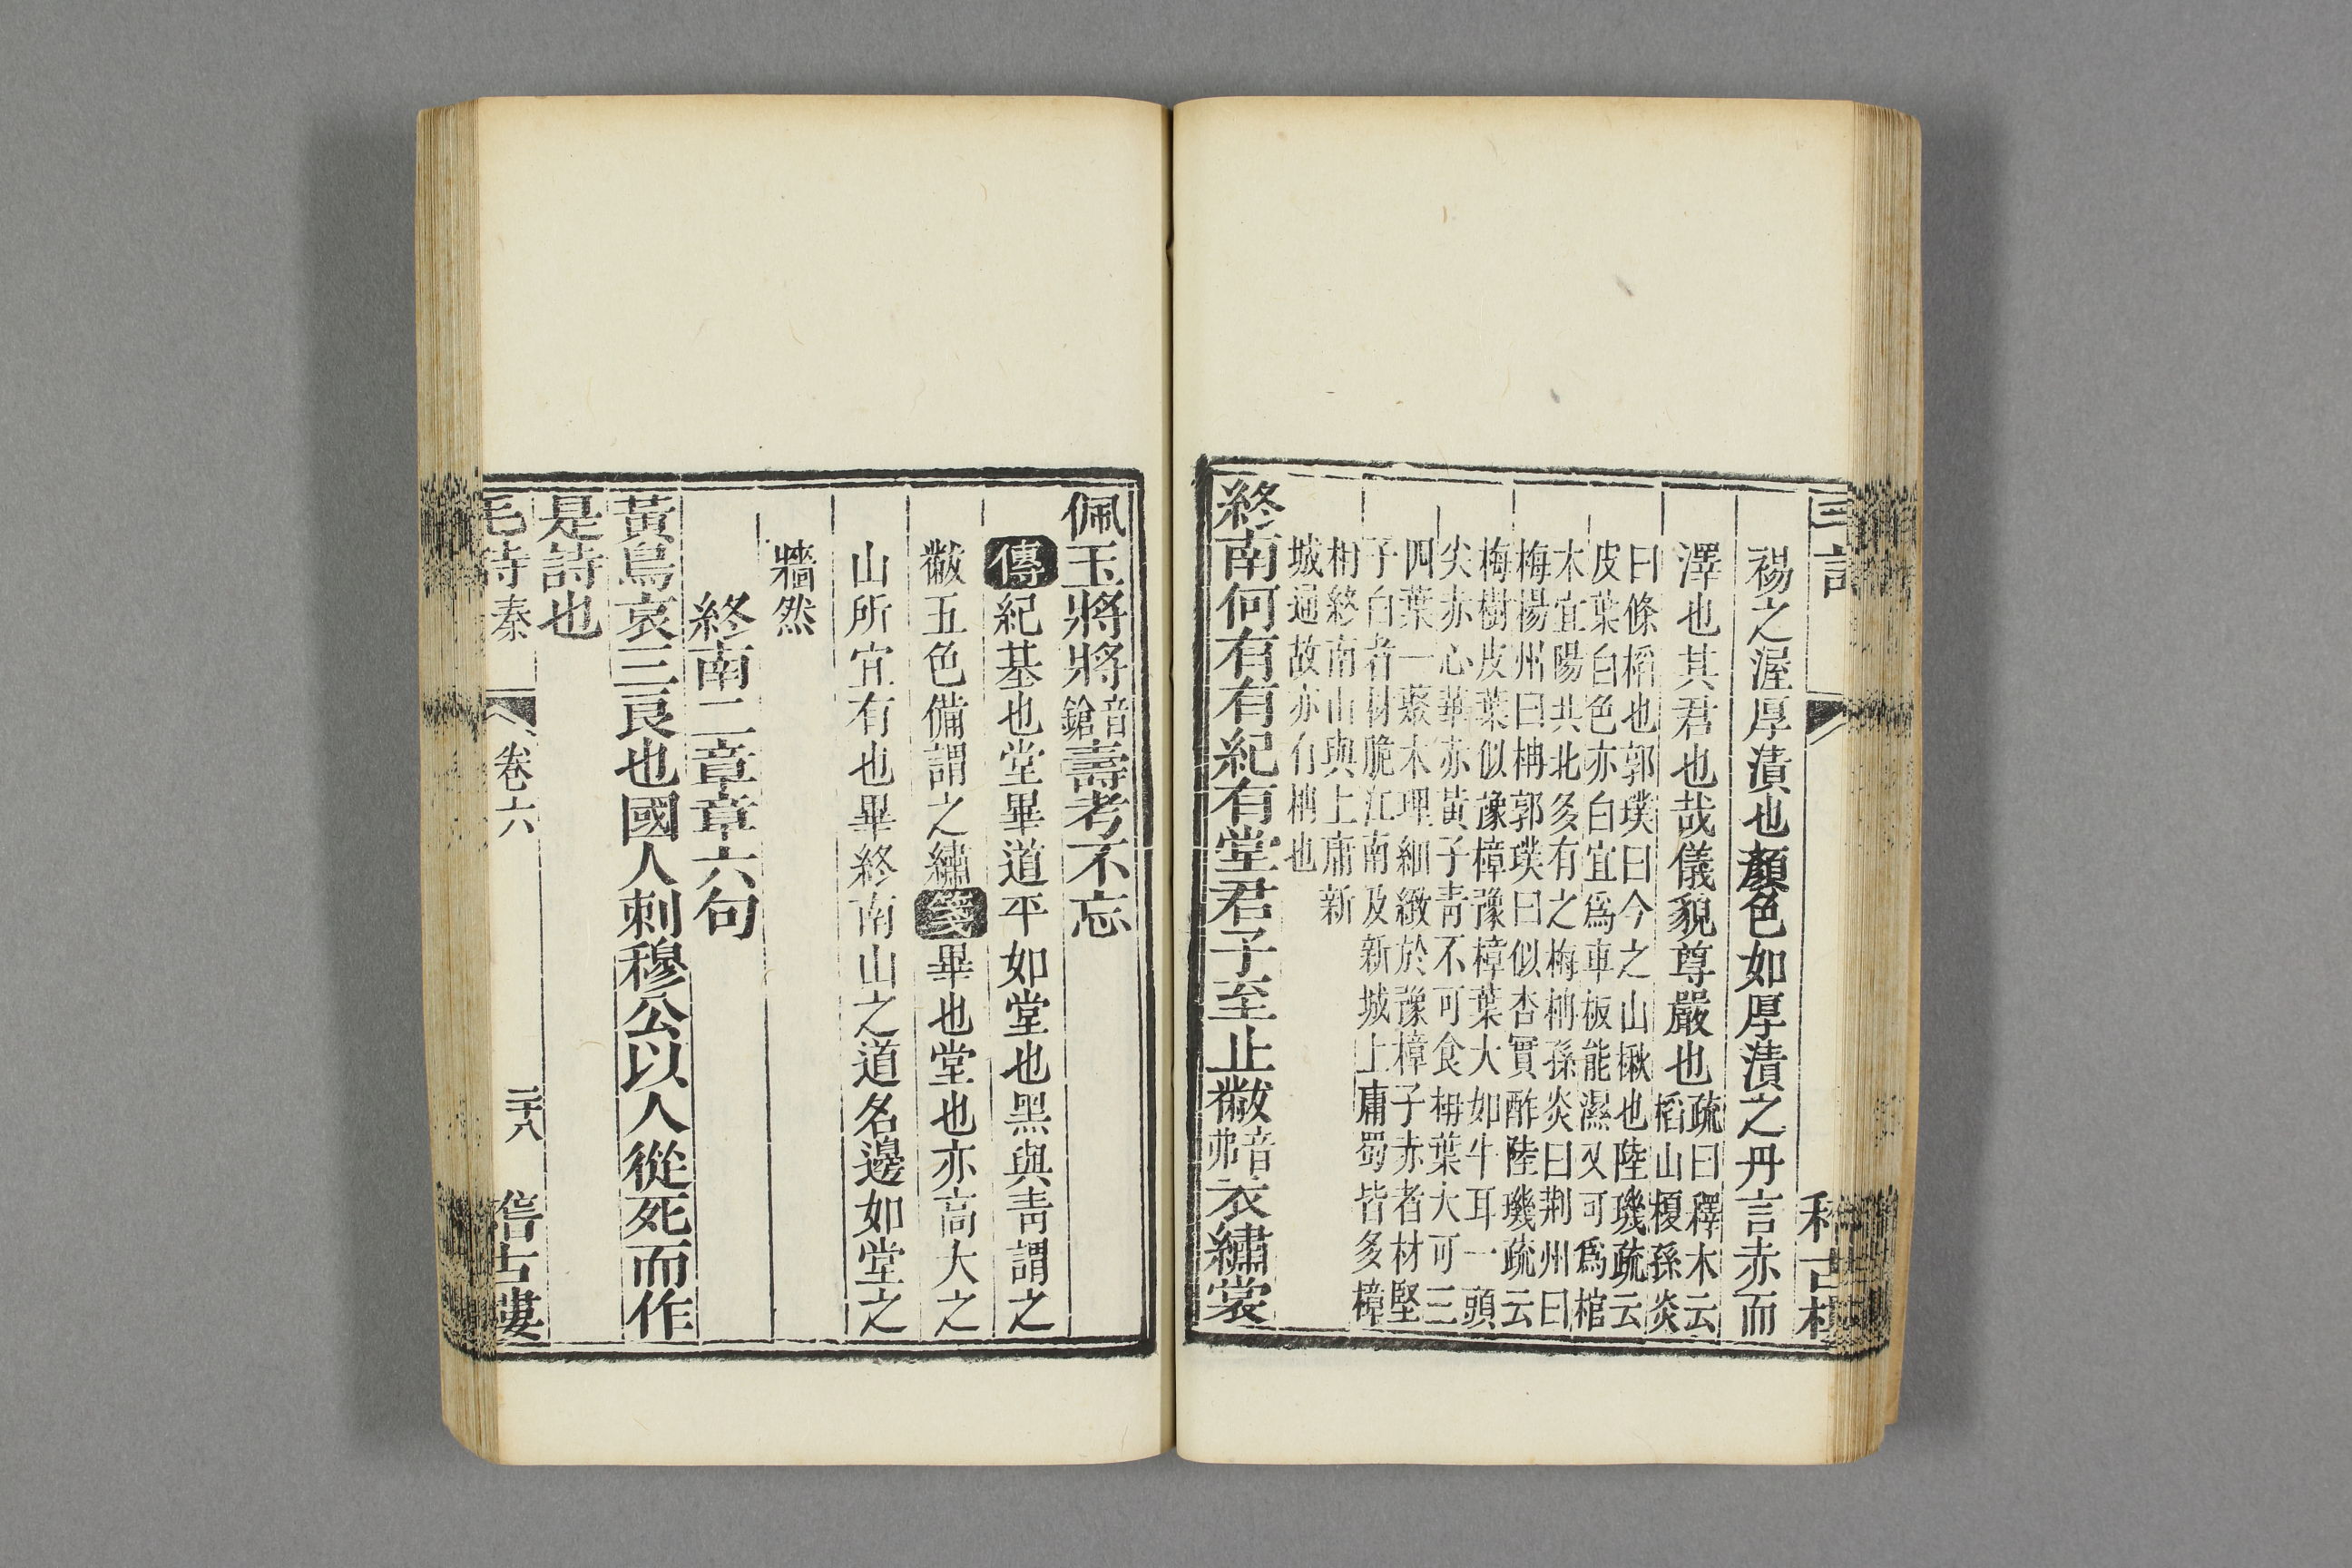 裼之渥厚漬也顏色如厚漬之丹言赤而
澤也其君也哉儀貌尊嚴也
疏曰釋木云
槄山榎孫炎
曰條槄也郭璞曰今之山楸也陸璣疏云
皮葉白色亦白宜爲車板能濕又可爲棺
木宜陽共北多有之梅柟孫炎曰荆州曰
梅楊州曰柟郭璞曰似杏實酢陸璣疏云
梅樹皮葉似豫樟豫樟葉大如牛耳一頭
尖赤心華赤黃子靑不可食柟葉大可三
四葉一叢木理細緻於豫樟子赤者材堅
子白者材脆江南及新城上庸蜀皆多樟
柟終南山與上庸新
城通故亦有柟也
終南何有有紀有堂君子至止黻音弗衣繡裳
佩玉將將音鎗壽考不忘
傳紀基也堂畢道平如堂也黑與靑謂之
黻五色備謂之繡箋畢也堂也亦高大之
山所宜有也畢終南山之道名邊如堂之
牆然
終南二章章六句
黃鳥哀三良也國人刺穆公以人從死而作
是詩也
毛詩秦 卷六 二十八 稽古樓